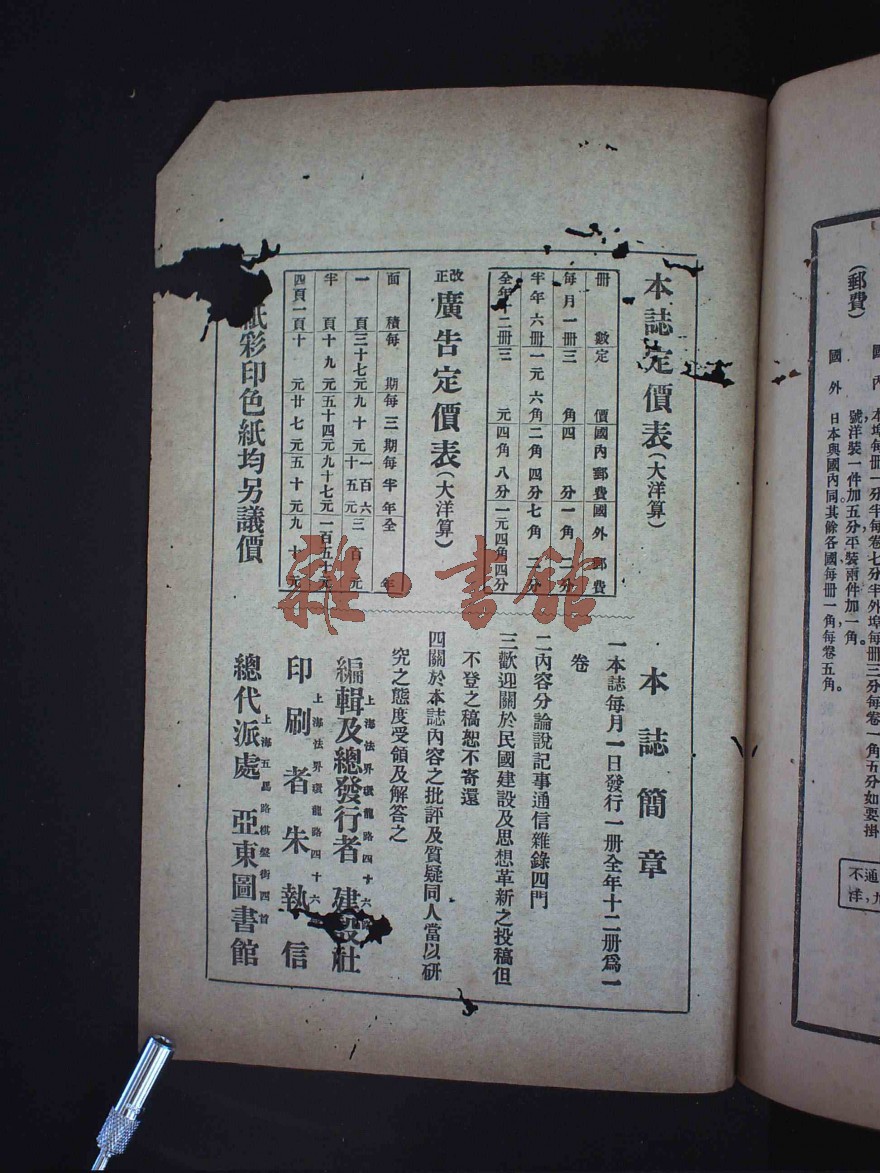 (郵費)
本埠每册一分半，每卷七分半，外埠每册三分，每卷一角五分，如要掛
號洋裝一件加五分，平裝兩件加一角。
國外 日本與國內同，其餘各國每册一角，每卷五角。
本誌定價表(大洋算)
册數 定價 國內郵費 國外郵費
每月一册 三角 四分 一角二分
半年六册 一元六角 二角四分 七角二分
全年十二册 三元 四角八分 一元四角四分
改正廣告定價表(大洋算)
面積 每期 每三期 每半年 全年
一頁 三十七元 九十元 一百六十五元 三百元
半頁 十九元 五十四元 九十七元 一百五七元
四頁一頁 十元 廿七元 五十元 九十元
紙彩印色紙均另議價
本誌簡章
一本誌每月一日發行一册全年十二册爲一
卷
二內容分論說記事通信雜錄四門
三歡迎關於民國建設及思想革新之投稿但
不登之稿恕不寄還
四關於本誌內容之批評及質疑同人當以研
究之態度受領及解答之
上海法界環龍路四十六號
編輯及總發行者 建設社
上海法界環龍路四十六
印刷者 朱執信
上海五馬路棋盤街西首
總代派處 亞東圖書館
雜·書館